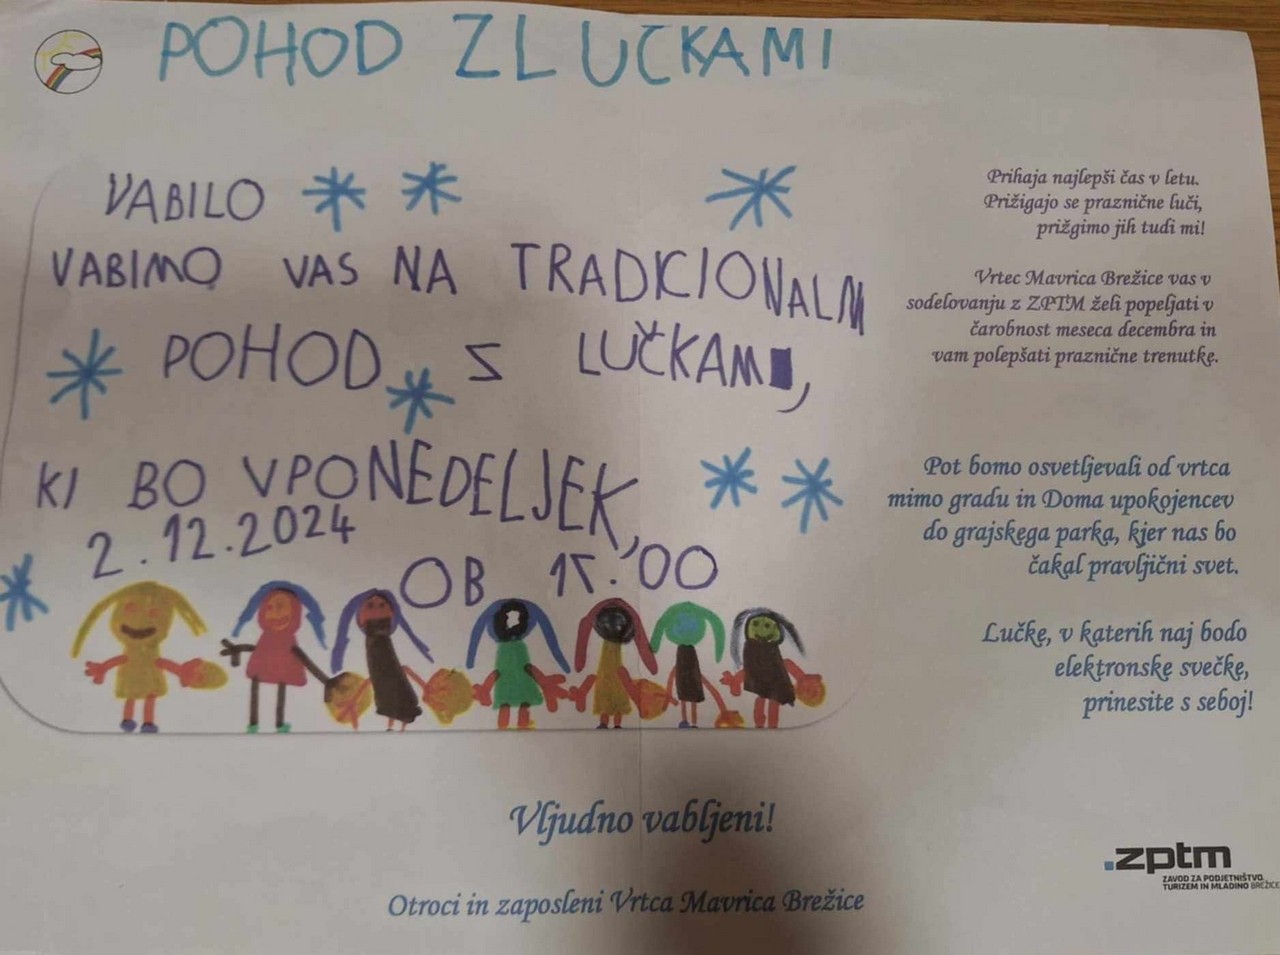 POHOD Z LUČKAMI
VABILO
VABIMO VAS NA TRADICIONALNI
POHOD S LUČKAMI,
KI BO V PONEDELJEK,
2.12.2024
OB 17.00
Prihaja najlepši čas v letu.
Prižigajo se praznične luči,
prižgimo jih tudi mi!
Vrtec Mavrica Brežice vas v
sodelovanju z ZPTM želi popeljati v
čarobnost meseca decembra in
vam polepšati praznične trenutke.
Pot bomo osvetljevali od vrtca
mimo gradu in Doma upokojencev
do grajskega parka, kjer nas bo
čakal pravljični svet.
Lučke, v katerih naj bodo
elektronske svečke,
prinesite s seboj!
Vljudno vabljeni!
Otroci in zaposleni Vrtca Mavrica Brežice
.zptm
ZAVOD ZA PODJETNIŠTVO,
TURIZEM IN MLADINO BREŽICE